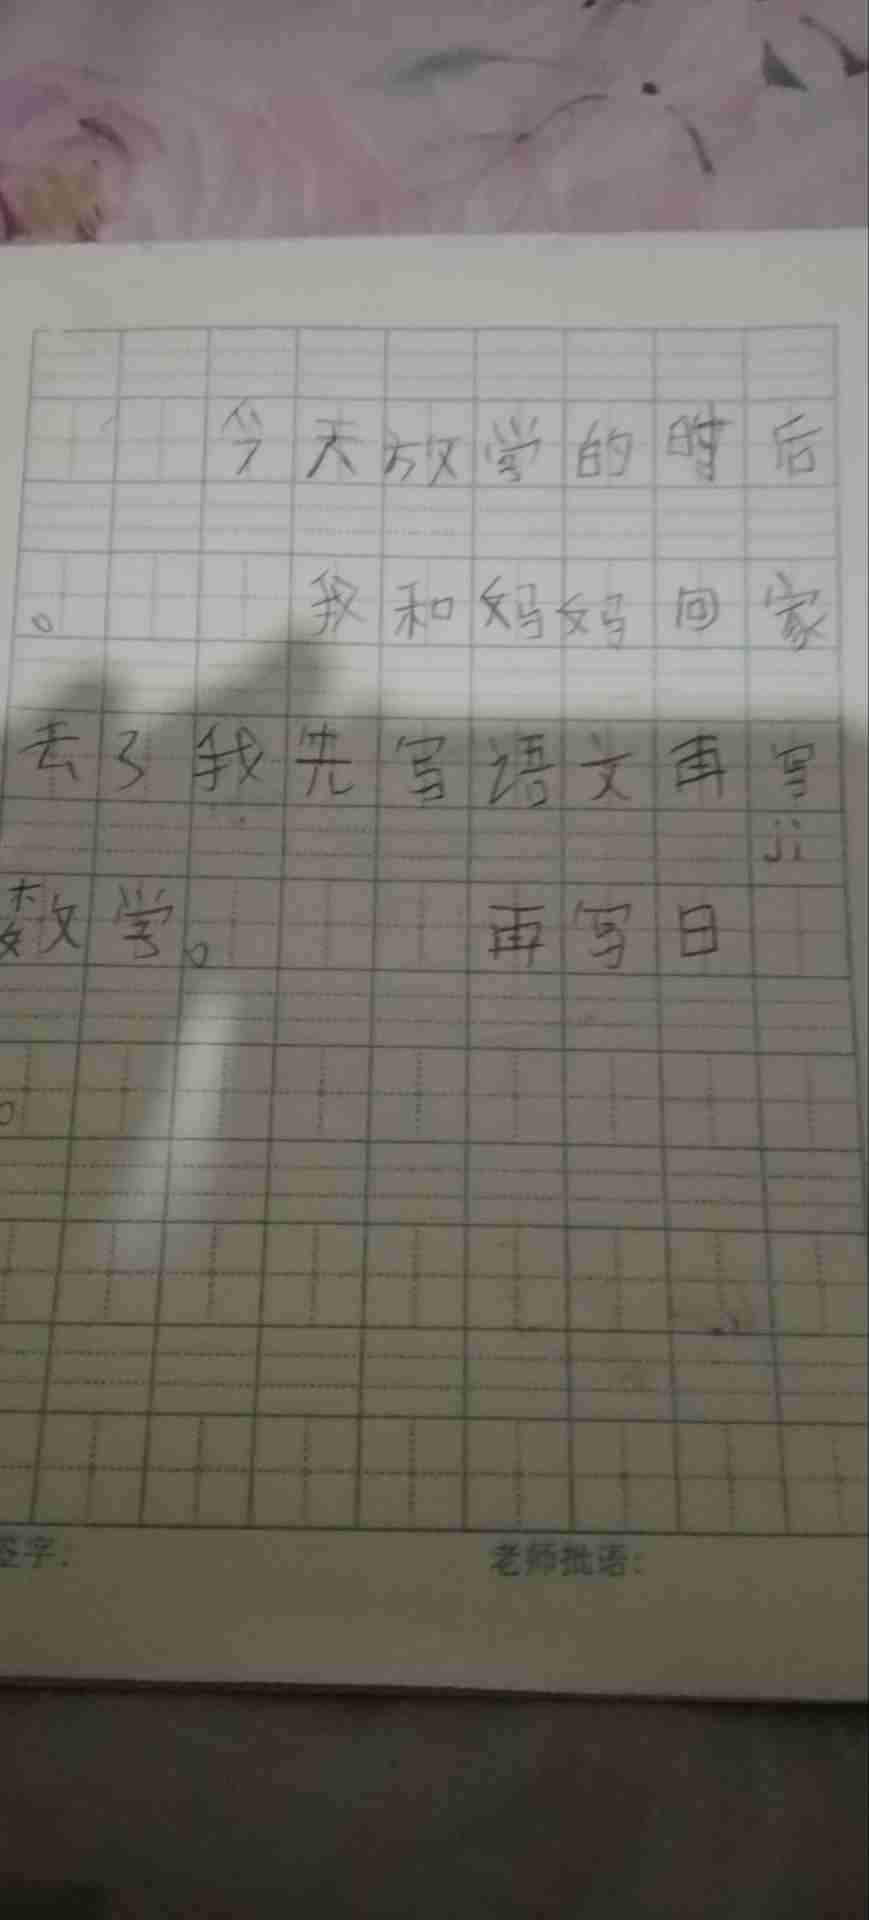 今天放学的时后
。 我和妈妈回家
去了我先写语文再写
ji
数学。 再写日
。
签字： 老师批语：